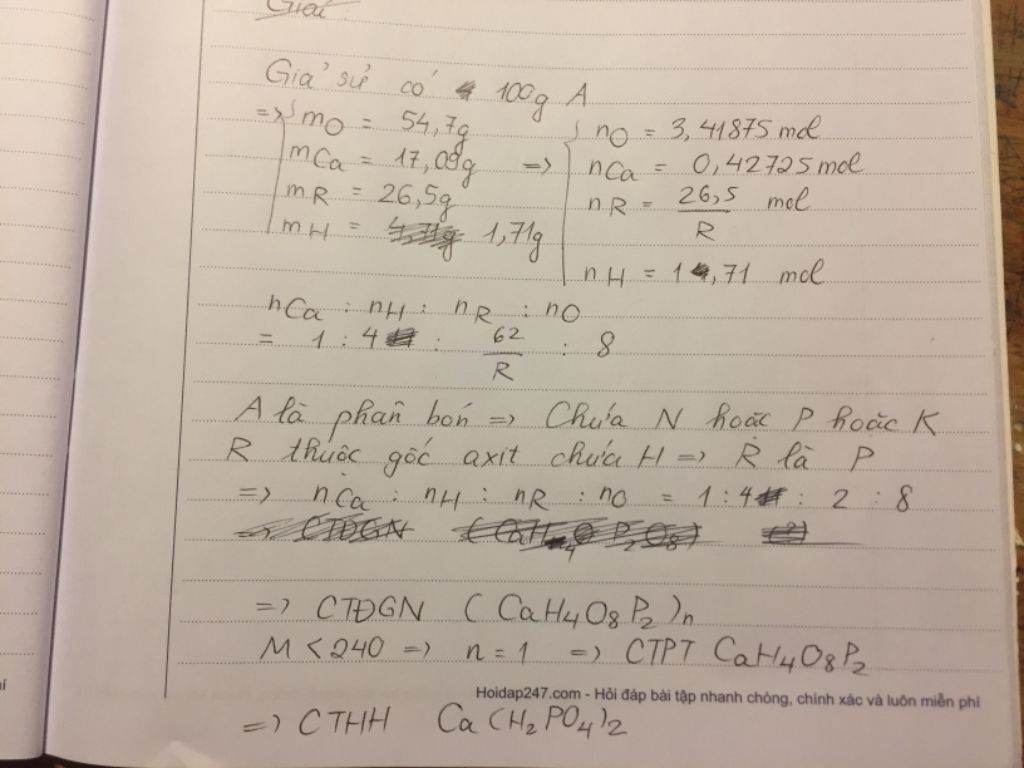 Giải:
Giả sử có 100g A
=> mO = 54,7g
mCa = 17,09g
mR = 26,5g
mH = 1,71g
=> nO = 3,41875 mol
nCa = 0,42725 mol
nR = 26,5/R mol
nH = 1,71 mol
nCa : nH : nR : nO
= 1 : 4 : 62/R : 8
A là phân bón => Chứa N hoặc P hoặc K
R thuộc gốc axit chứa H => R là P
=> nCa : nH : nR : nO = 1 : 4 : 2 : 8
=> CTĐGN (CaH4O8P2)n
M < 240 => n = 1 => CTPT CaH4O8P2
Hoidap247.com - Hỏi đáp bài tập nhanh chóng, chính xác và luôn miễn phí
=> CTHH Ca(H2PO4)2